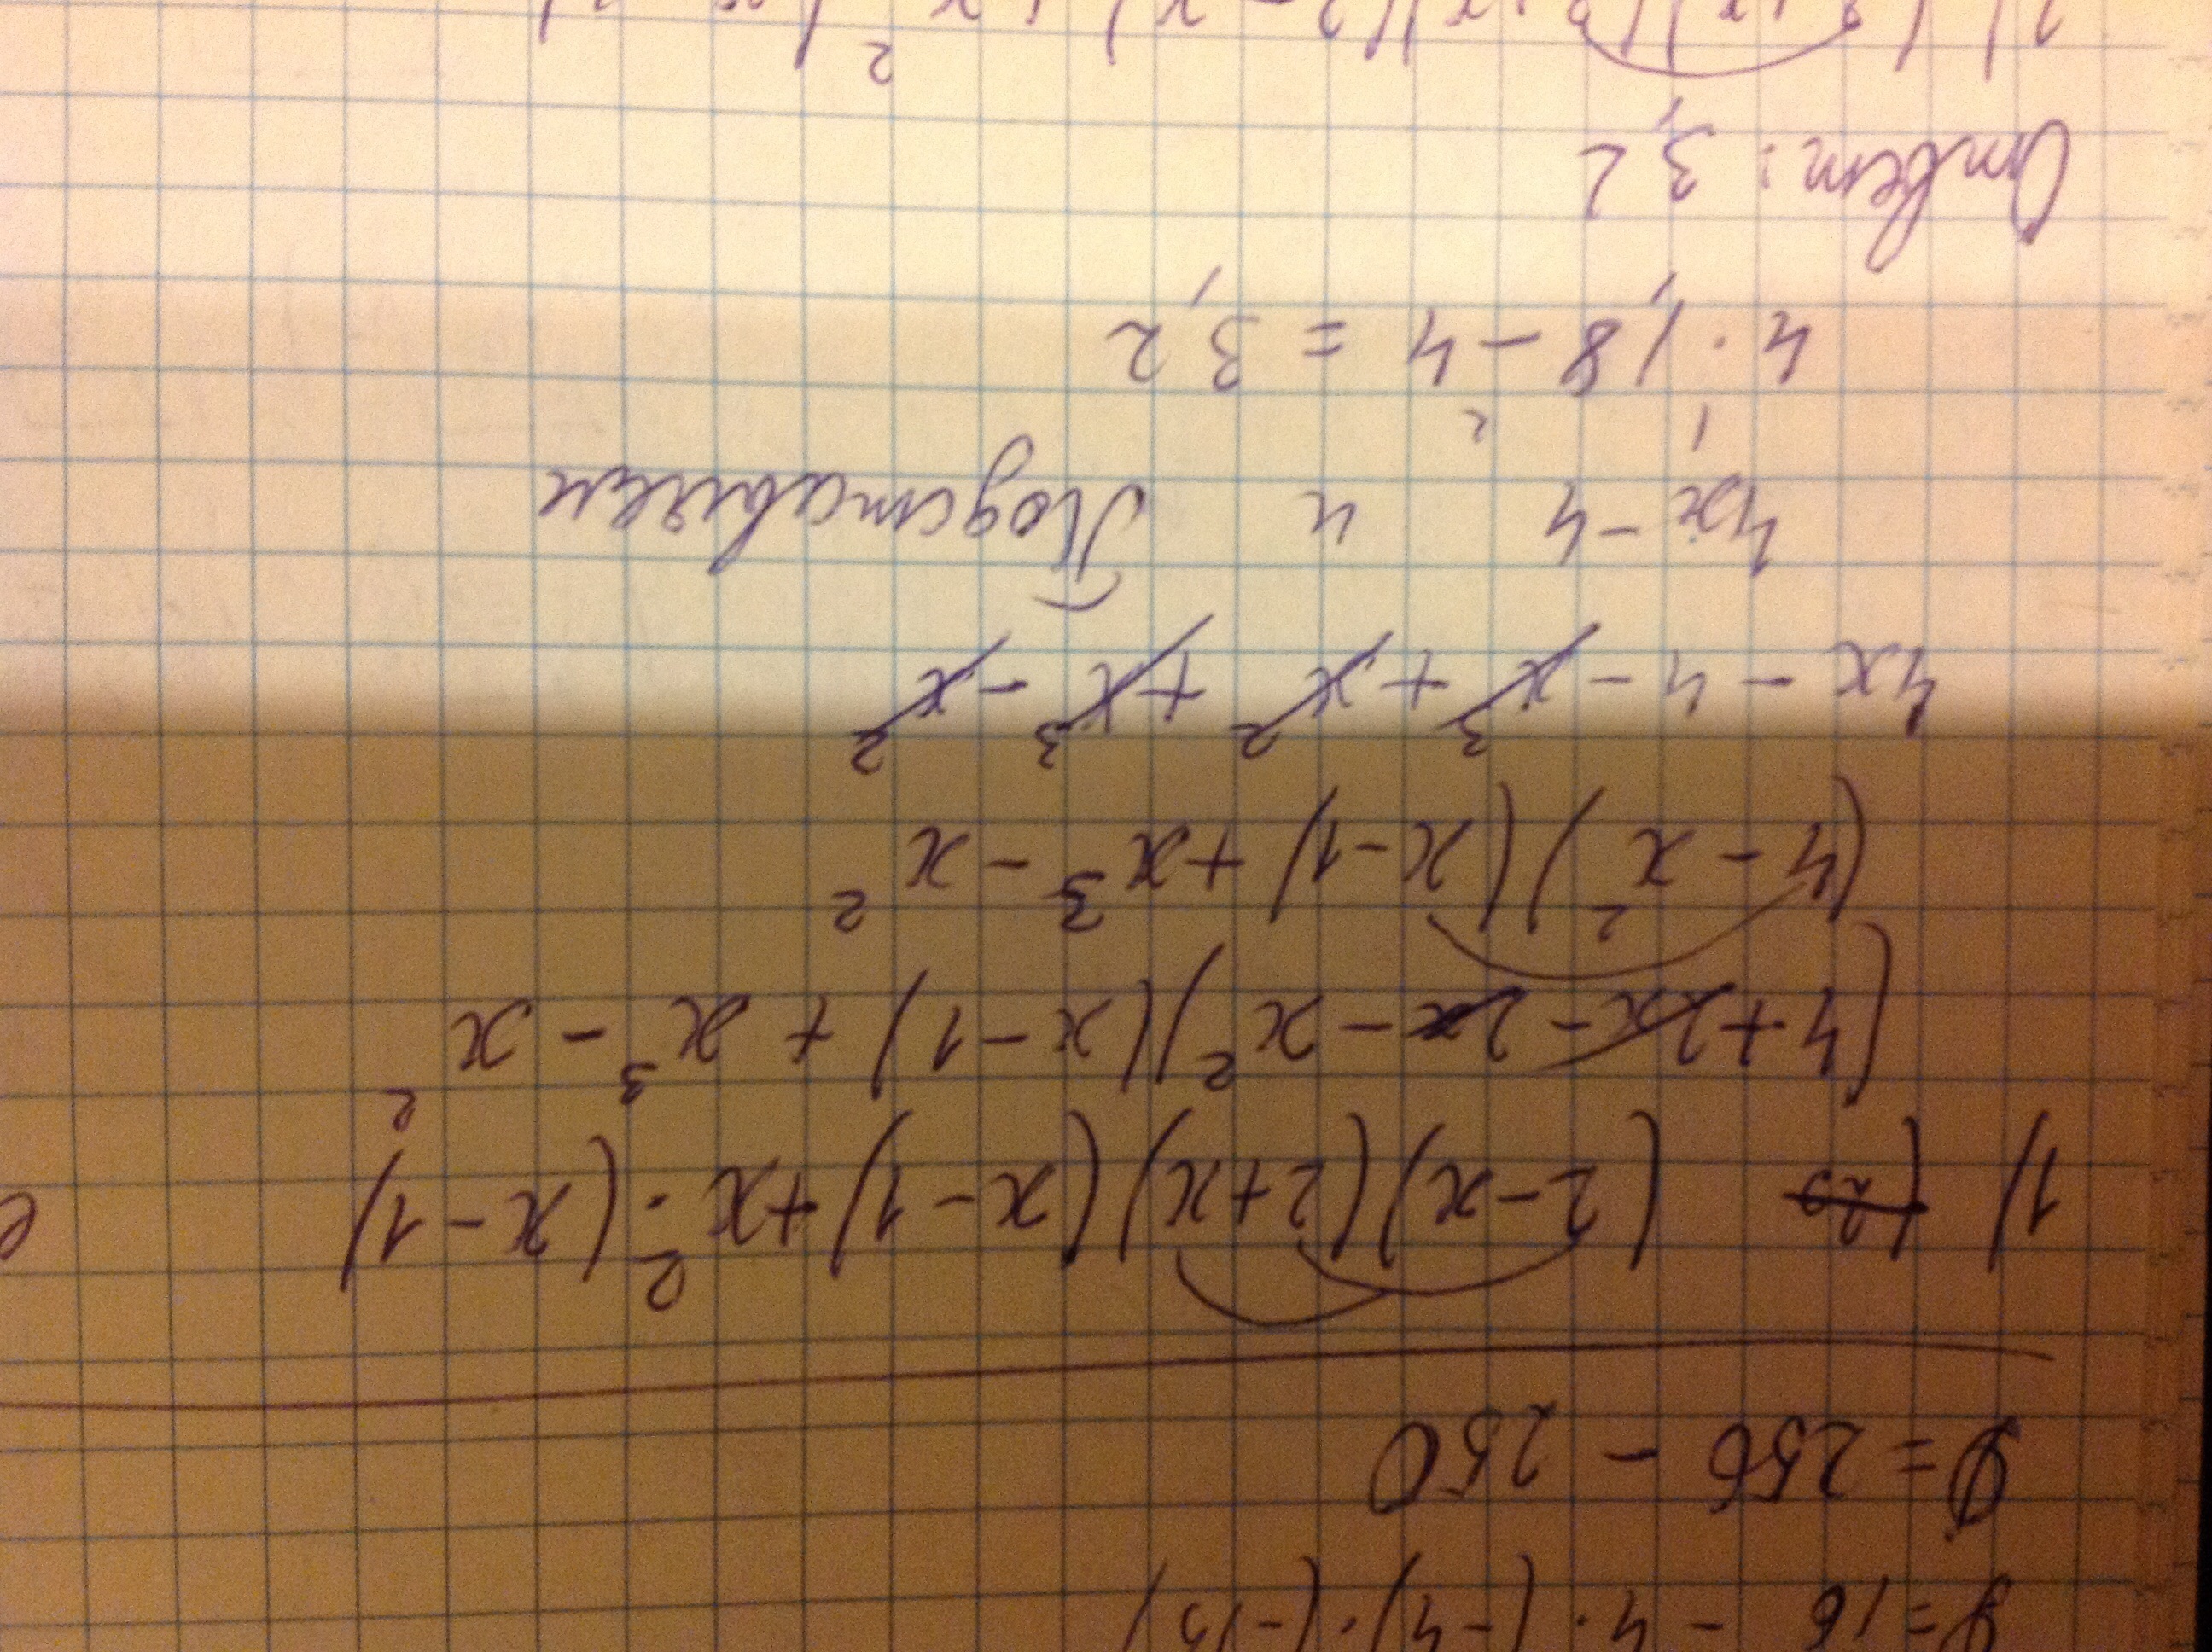 D=256 - 250
1) (2-x)(2+x)(x-1)+x²·(x-1)
(4+2x-2x-x²)(x-1)+x³-x²
(4-x²)(x-1)+x³-x²
4x-4-x³+x²+x³-x²
4x-4 Подставляем
4·1,8-4=3,2
Ответ: 3,2